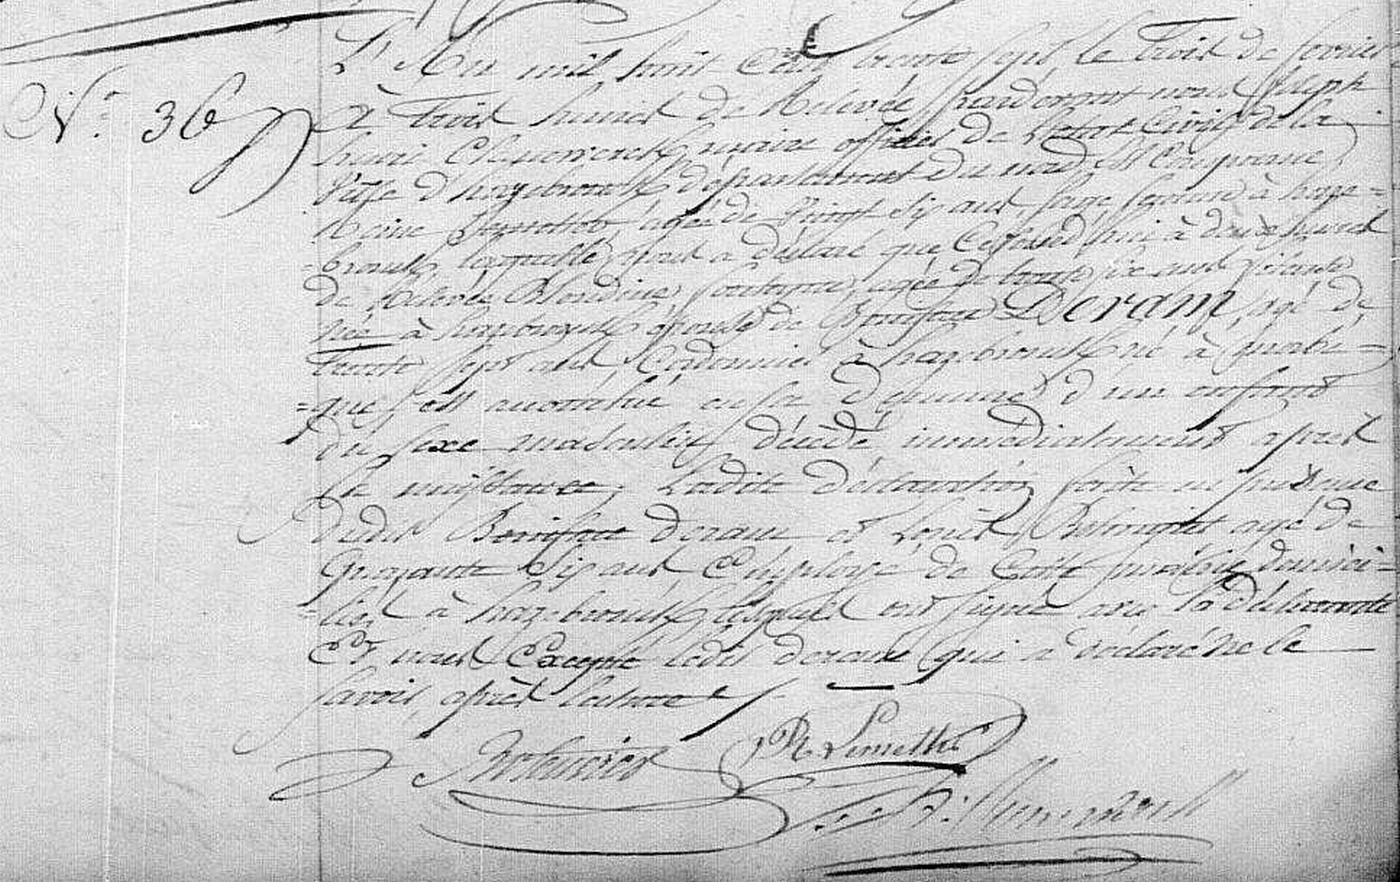 N.° 36
L'An mil huit Cent trente sept le Trois de fevrier
à Trois heures de Relevée, pardevant nous Joseph
henri maire officier de l'etat Civil de la
Ville d'hazebrouck département du nord Est Comparue,
Reine agée de Vingt Six ans, sage femme à haze=
=brouck, laquelle nous a déclaré que Cejourd'hui à deux heures
de Relevée Blondine, agée de trente six ans
née à hazebrouck épouse de Boniface Deram, agé de
trente sept ans Cordonnier à hazebrouck né à
=que, est accouchée en sa Demeure d'un enfant
du sexe masculin, décédé immédiatement après
sa naissance, Ladite déclaration faite en présence
dudit Boniface Deram et Louis agé de
Quarante Six ans Employé de domici=
=liés à hazebrouck, lesquels ont signé avec la déclarante
Et nous Excepté ledit deram qui a déclaré ne le
savoir, après lecture